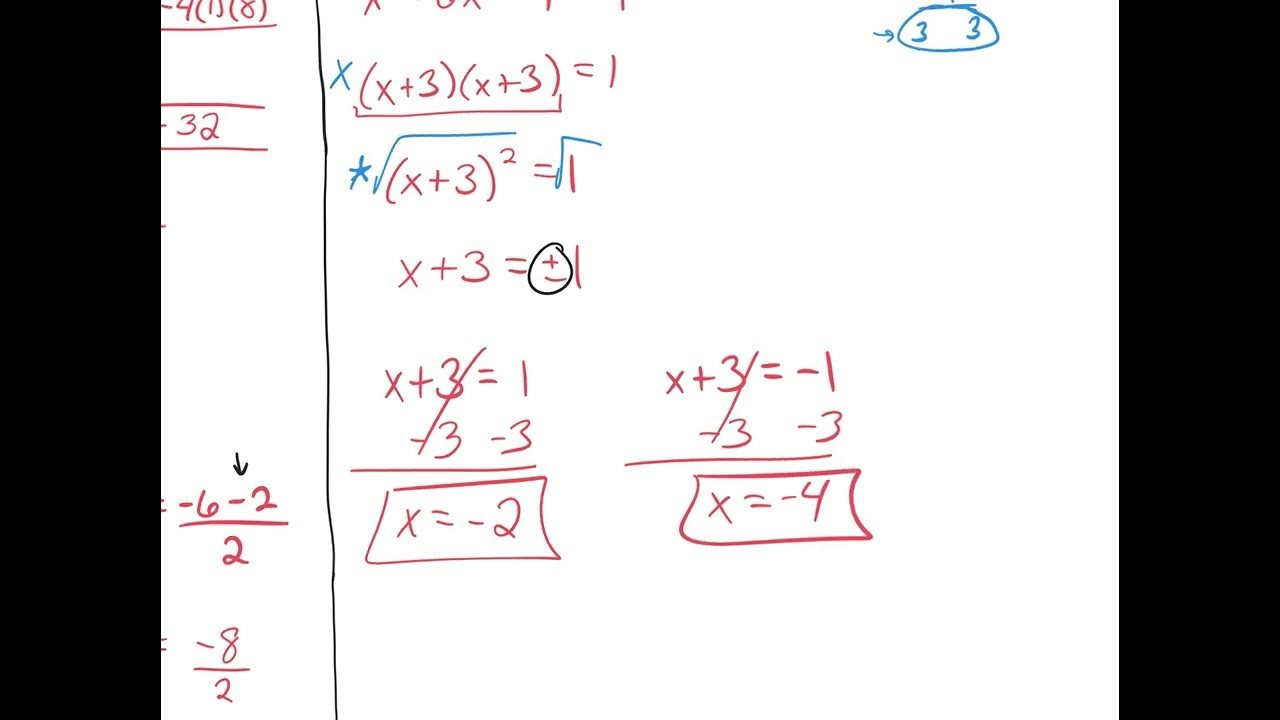 -4(1)(8)
- 32
= -6 - 2
2
= -8
2
x (x+3)(x+3) = 1
* √(x+3)² = √1
x + 3 = ± 1
x + 3 = 1
-3 -3
x = -2
x + 3 = -1
-3 -3
x = -4
→ 3 3